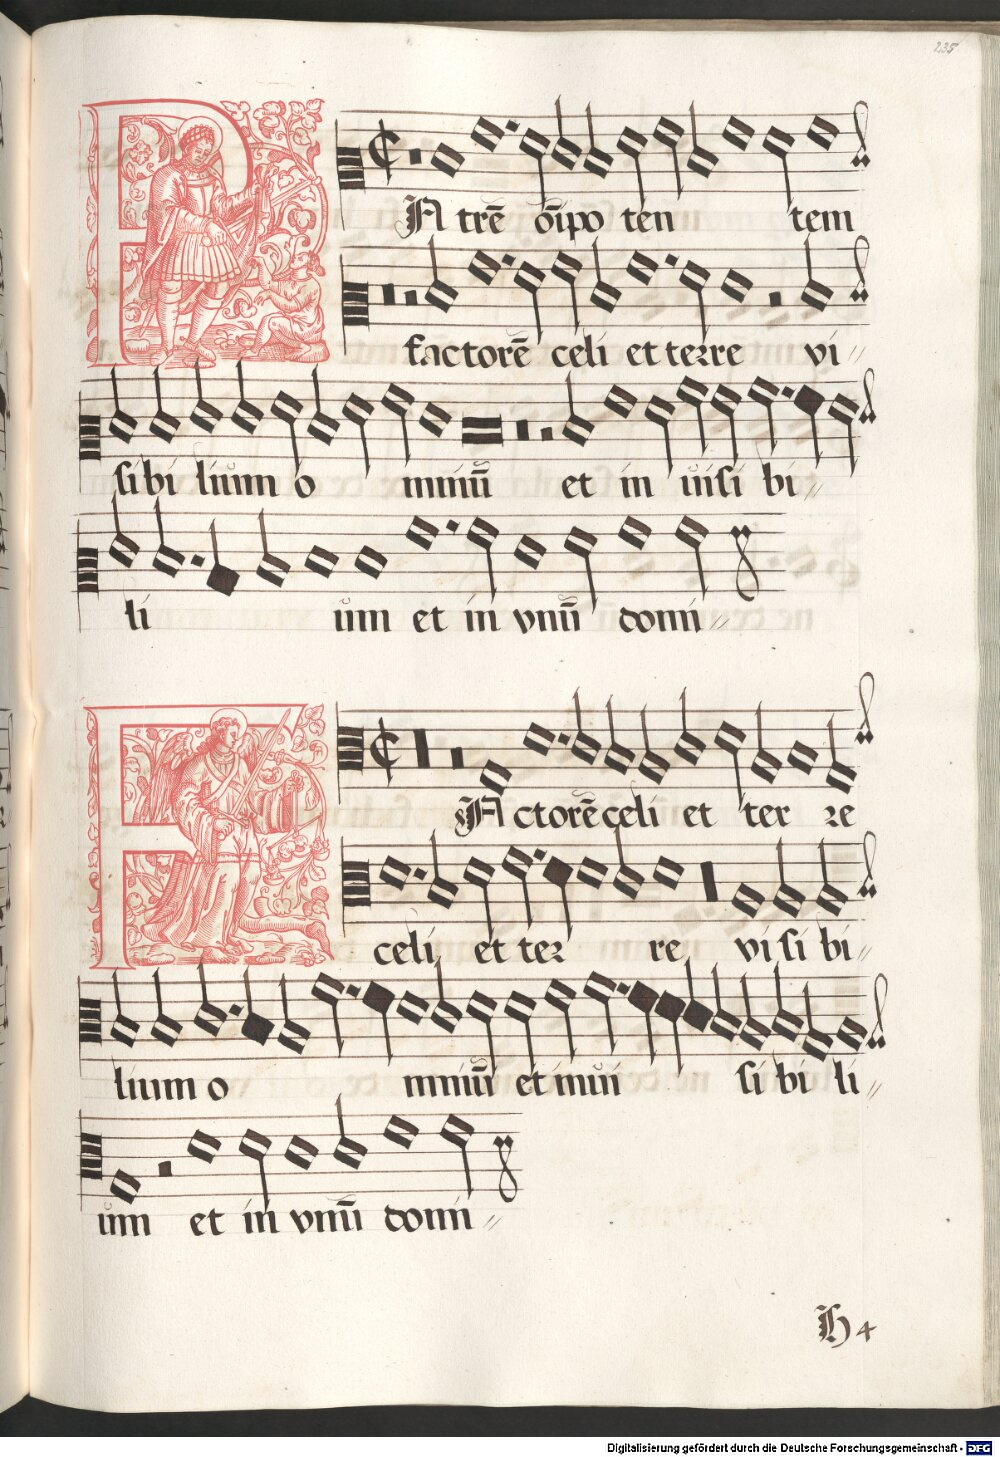 235
PAtrē oīpo ten tem
factorē celi et terre vi
sibi lium o mniū et in uisi bi
li ium et in vnū domi
FActorē celi et ter re
celi et ter re vi si bi
lium o mniū et inui si bi li
um et in vnū domi
H 4
Digitalisierung gefördert durch die Deutsche Forschungsgemeinschaft - DFG